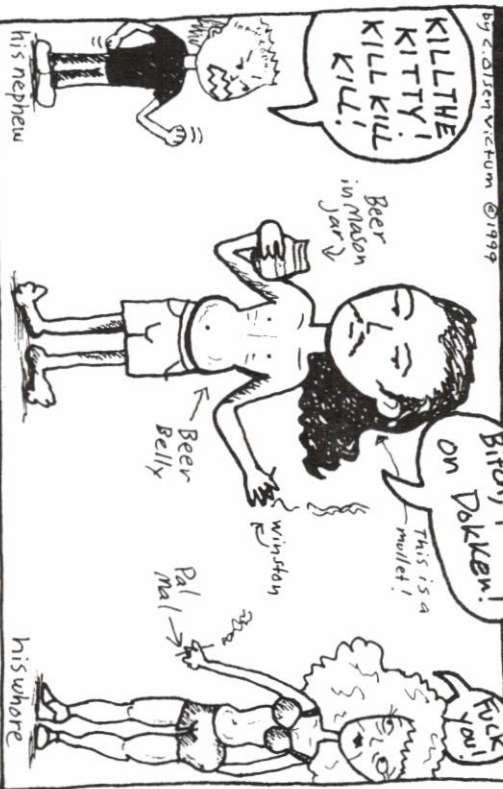 by C. Olsen Victum © 1999
KILL THE
KITTY!
KILL KILL
KILL!
his nephew
Beer
in Mason
Jar
Beer
Belly
Bitch,
on Dokken!
This is a
mullet!
Winston
Pal
Mal
FUCK
YOU!
his whore